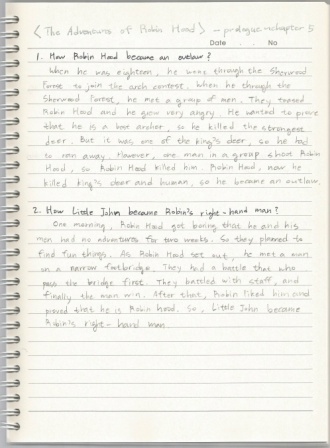 < The Adventures of Robin Hood > - prologue~chapter 5
Date . . No
1. How Robin Hood became an outlaw?
When he was eighteen, he went through the Sherwood
Forest to join the arch contest. When he through the
Sherwood Forest, he met a group of men. They teased
Robin Hood and he grew very angry. He wanted to prove
that he is a best archor, so he killed the strongest
deer. But it was one of the king's deer, so he had
to ran away. However, one man in a group shoot Robin
Hood, so Robin Hood killed him. Robin Hood, now he
killed king's deer and human, so he became an outlaw.
2. How Little John became Robin's right-hand man?
One morning, Robin Hood got boring that he and his
men had no adventures for two weeks. So they planned to
find fun things. As Robin Hood set out, he met a man
on a narrow footbridge. They had a battle that who
pass the bridge first. They battled with staff, and
finally the man win. After that, Robin liked him and
proved that he is Robin Hood. So, Little John became
Robin's right-hand man.